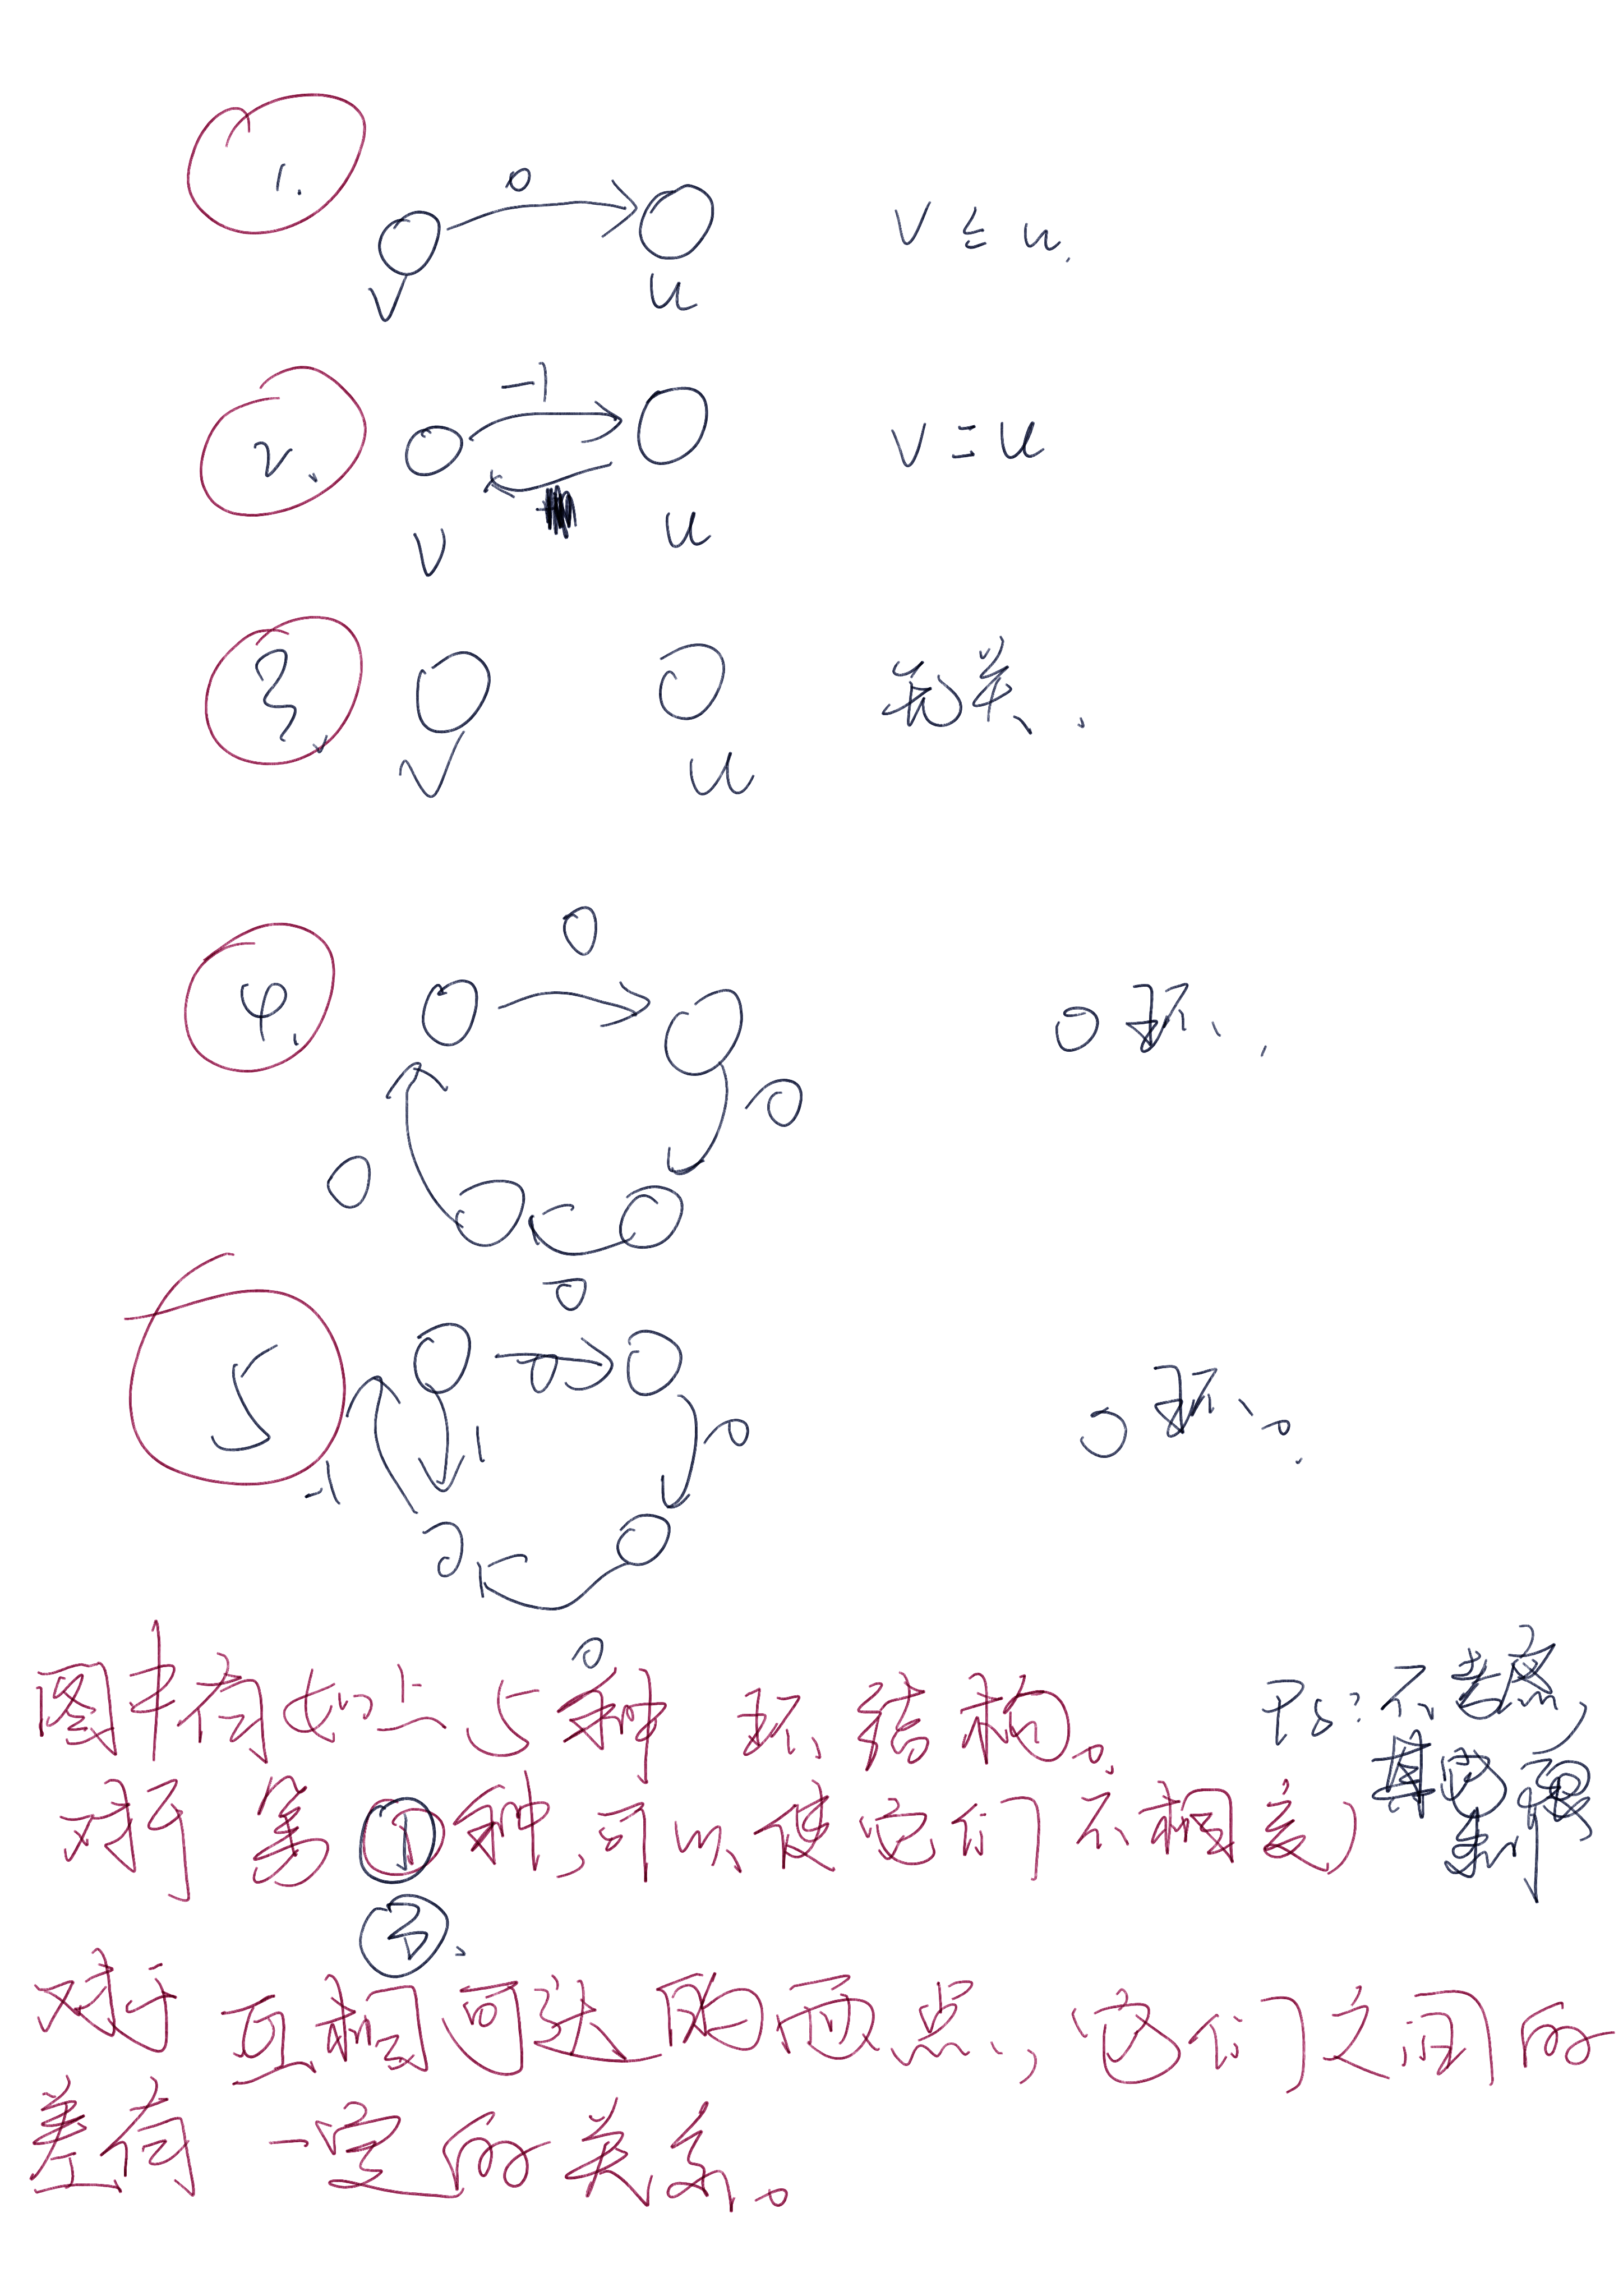 1.
0
v ≤ u.
v u
2.
-1
v = u
v u
3.
无关.
v u
4.
0
0
0
0
0环.
5
0
0
1
-1
0
0环。
图中有如上5种环结构。
Ps:不考虑,
其它限制
对于第①种,可以使它们不相交,
③.
对于互相可达的两点,它们之间的
差有一定的关系。